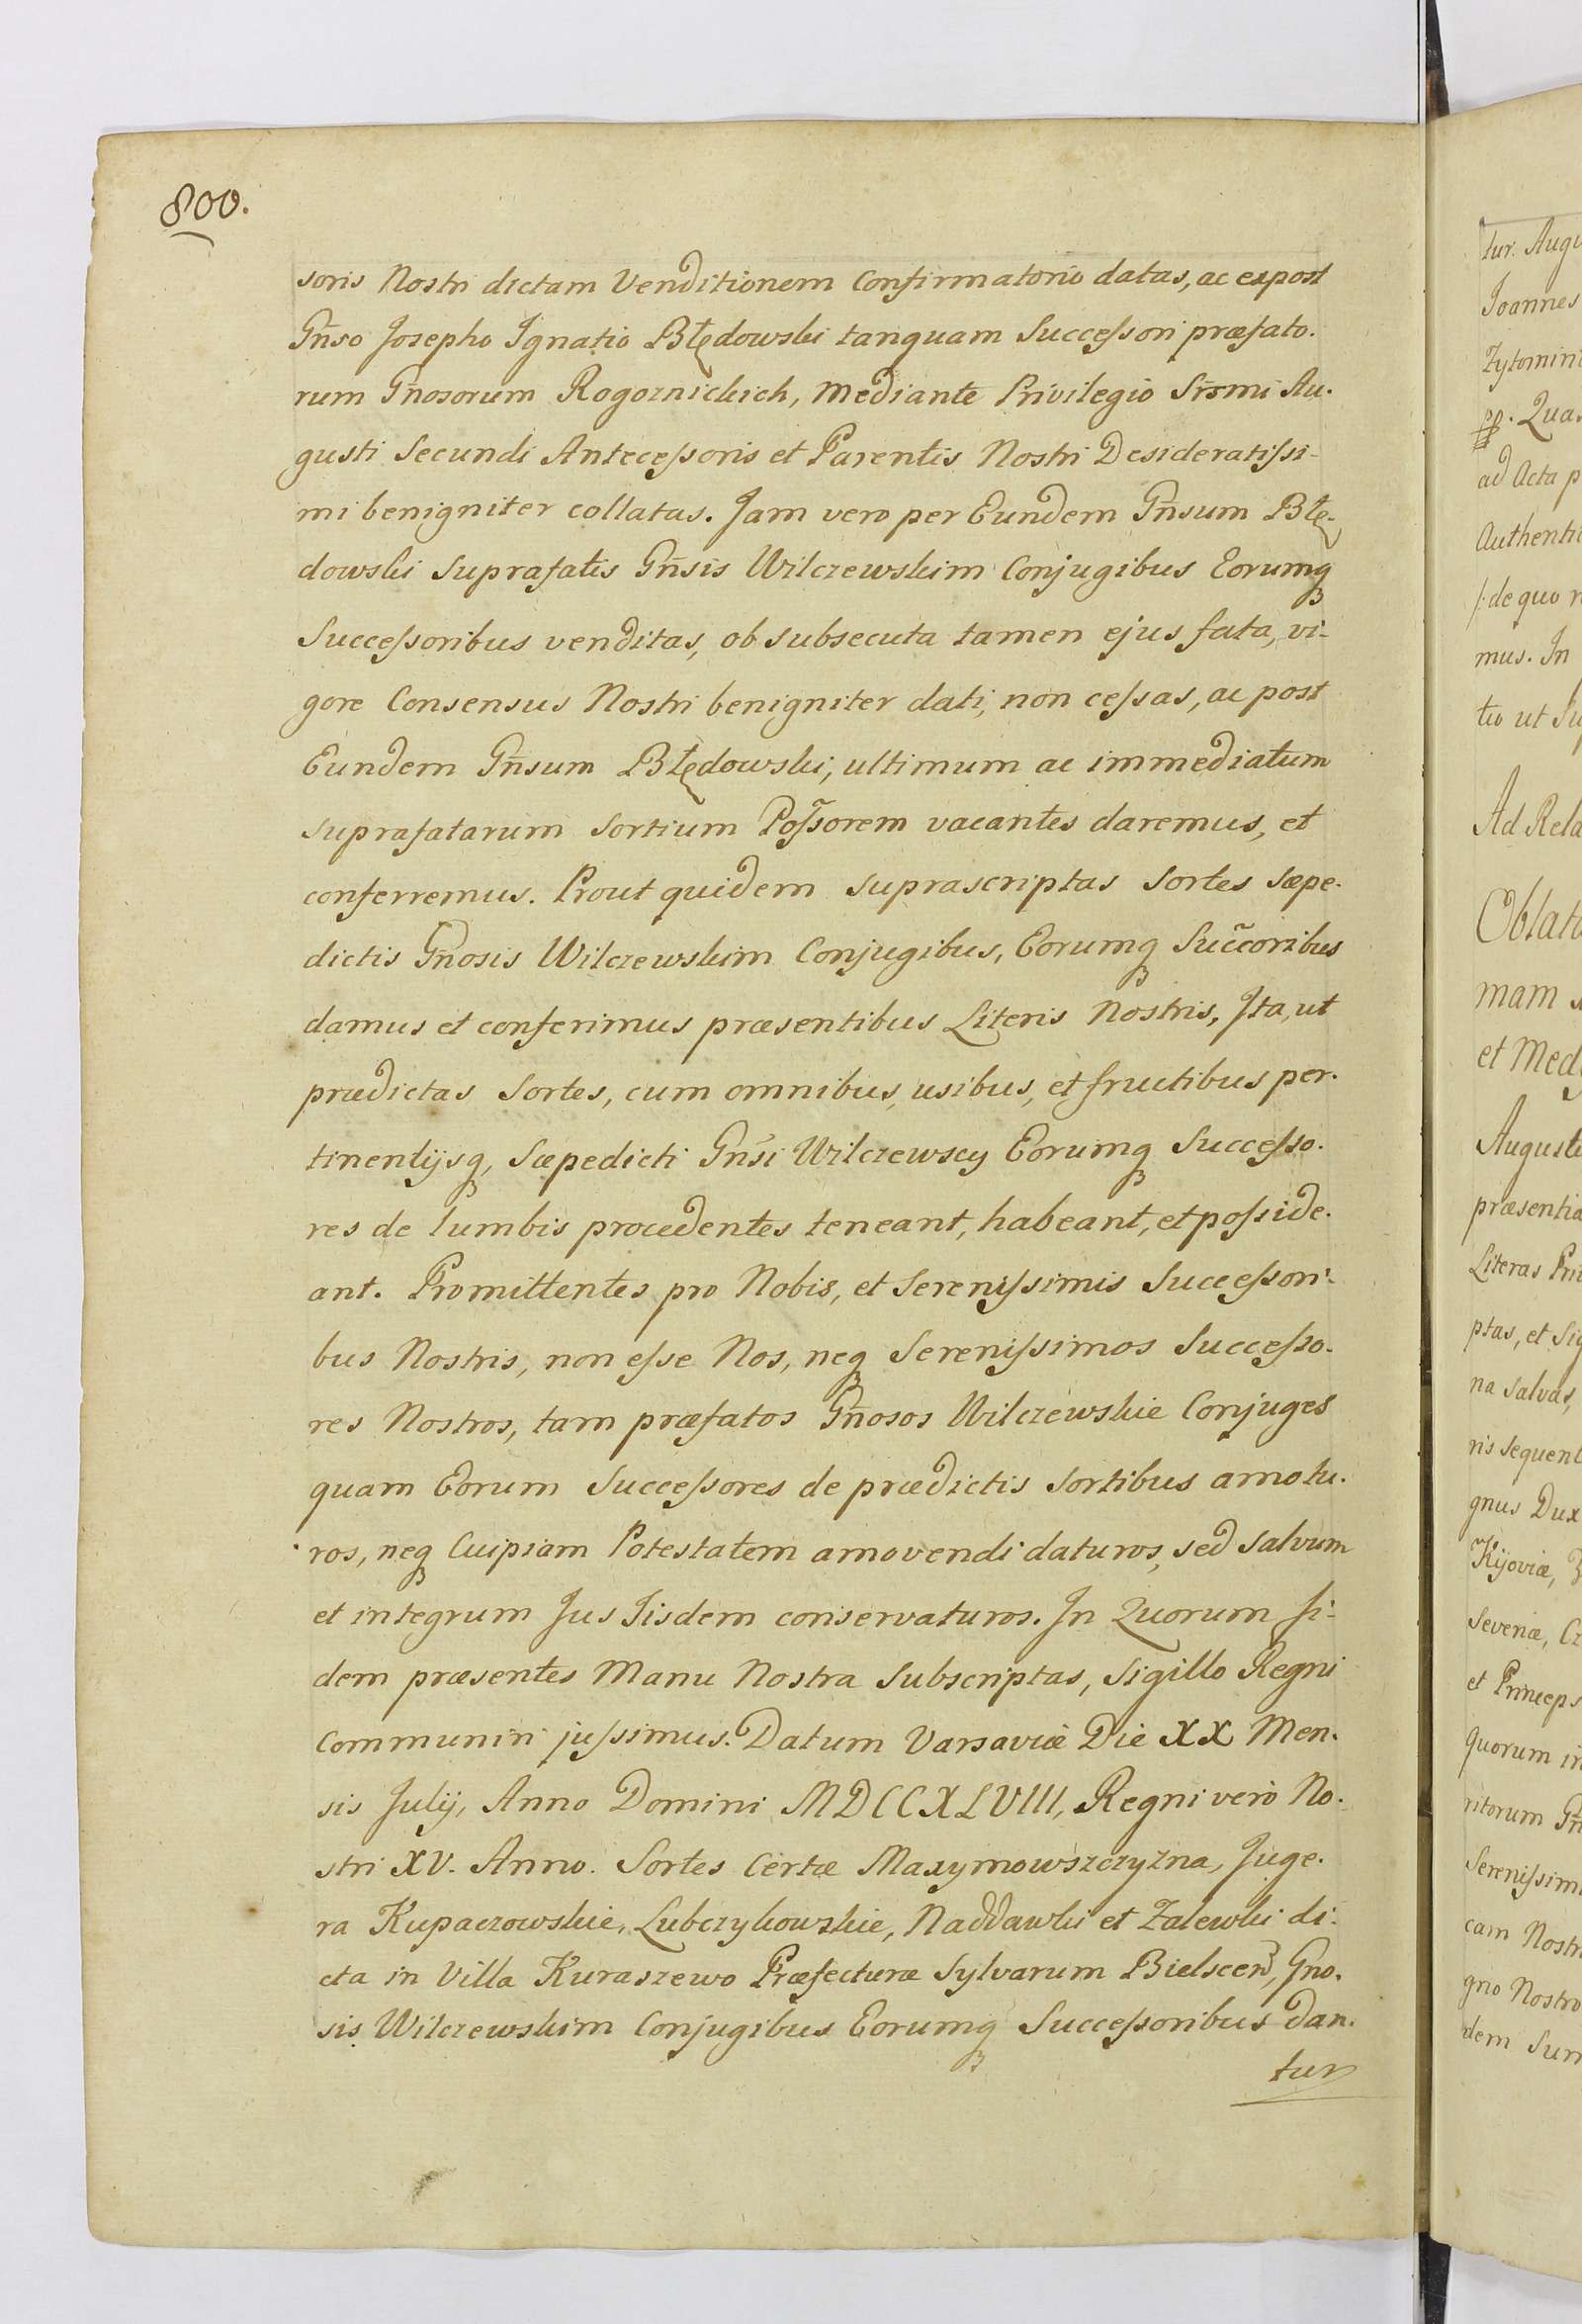 800.
soris Nostri dictam Venditionem Confirmatorio datas, ac expost
Gñso Josepho Ignatio Błędowski tanquam Successori præfato-
rum Gñosorum Rogoznickich, mediante Privilegio Srsmi Au-
gusti Secundi Antecessoris et Parentis Nostri Desideratissi-
mi benigniter collatas. Jam vero per Eundem Gñsum Błę-
dowski suprafatis Gñsis Wilczewskim Conjugibus Eorumq
Successoribus venditas, ob subsecuta tamen ejus fata, vi-
gore Consensus Nostri benigniter dati, non cessas, ac post
Eundem Gñsum Błędowski, ultimum ac immediatum
suprafatarum sortium Poss̃orem vacantes daremus, et
conferremus. Prout quidem suprascriptas sortes sæpe-
dictis Gñosis Wilczewskim Conjugibus, Eorumq Succ̃oribus
damus et conferimus præsentibus Literis Nostris, Ita, ut
prædictas Sortes, cum omnibus, usibus, et fructibus per-
tinentijsq, Sæpedicti Gñsi Wilczewscy Eorumq Successo-
res de lumbis procedentes teneant, habeant, et posside-
ant. Promittentes pro Nobis, et Serenissimis Successori-
bus Nostris, non esse Nos, neq Serenissimos Successo-
res Nostros, tam præfatos Gñosos Wilczewskie Conjuges
quam Eorum Successores de prædictis Sortibus amotu-
ros, neq Cuipiam Potestatem amovendi daturos, sed salvum
et integrum Jus Iisdem conservaturos. In Quorum fi-
dem præsentes Manu Nostra Subscriptas, Sigillo Regni
Communiri jussimus. Datum Varsaviæ Die XX Men-
sis Julij, Anno Domini MDCCXLVIII, Regni vero No-
stri XV. Anno. Sortes Certæ Maxymowszczyzna, Juge-
ra Kupaczowskie, Lubczykowskie, Naddawki et Zalewki di-
cta in Villa Kuraszewo Præfecturæ Sylvarum Bielscen, Gno-
sis Wilczewskim Conjugibus Eorumq Successoribus Dan-
tur
tur. Augu
Joannes
Zytomiri
pp. Quas
ad Acta p
Authenti
/: de quo r
mus. In
tio ut Su
Ad Rela
Oblat
mam
et Med
Auguste
præsentia
Literas Pri
ptas, et Sig
na salvas,
ris sequent
gnus Dux
Kijoviæ,
Severiæ, Cz
et Princeps
quorum in
ritorum Gñ
Serenissim
cam Nostr
gno Nostro
dem Sum